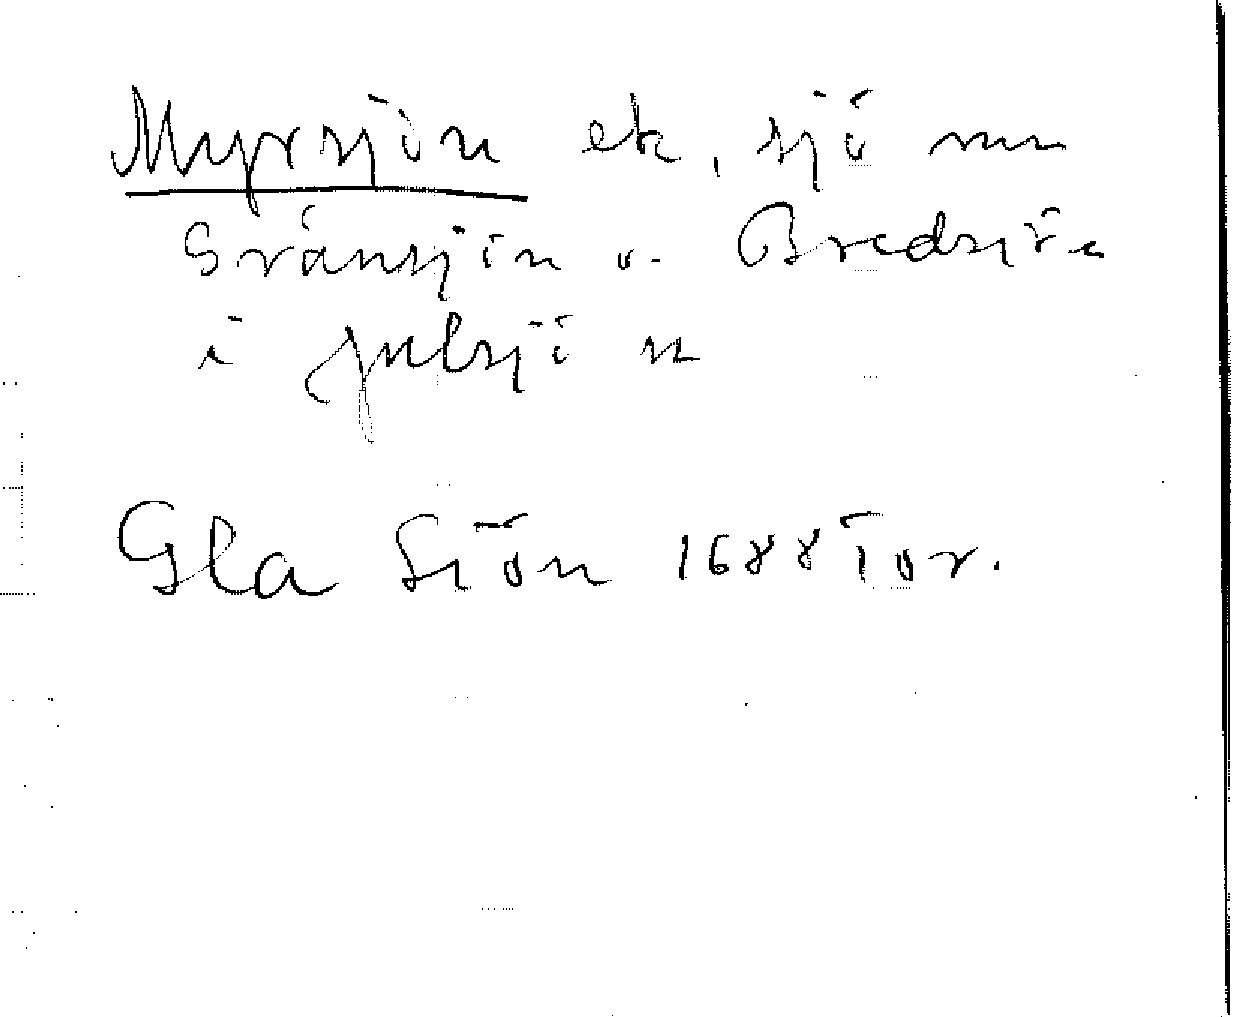 Myrsjön ek, sjö mn
Svänsjön o. Bredsjön
i Julsjön
Gla Siön 1688 Tor.